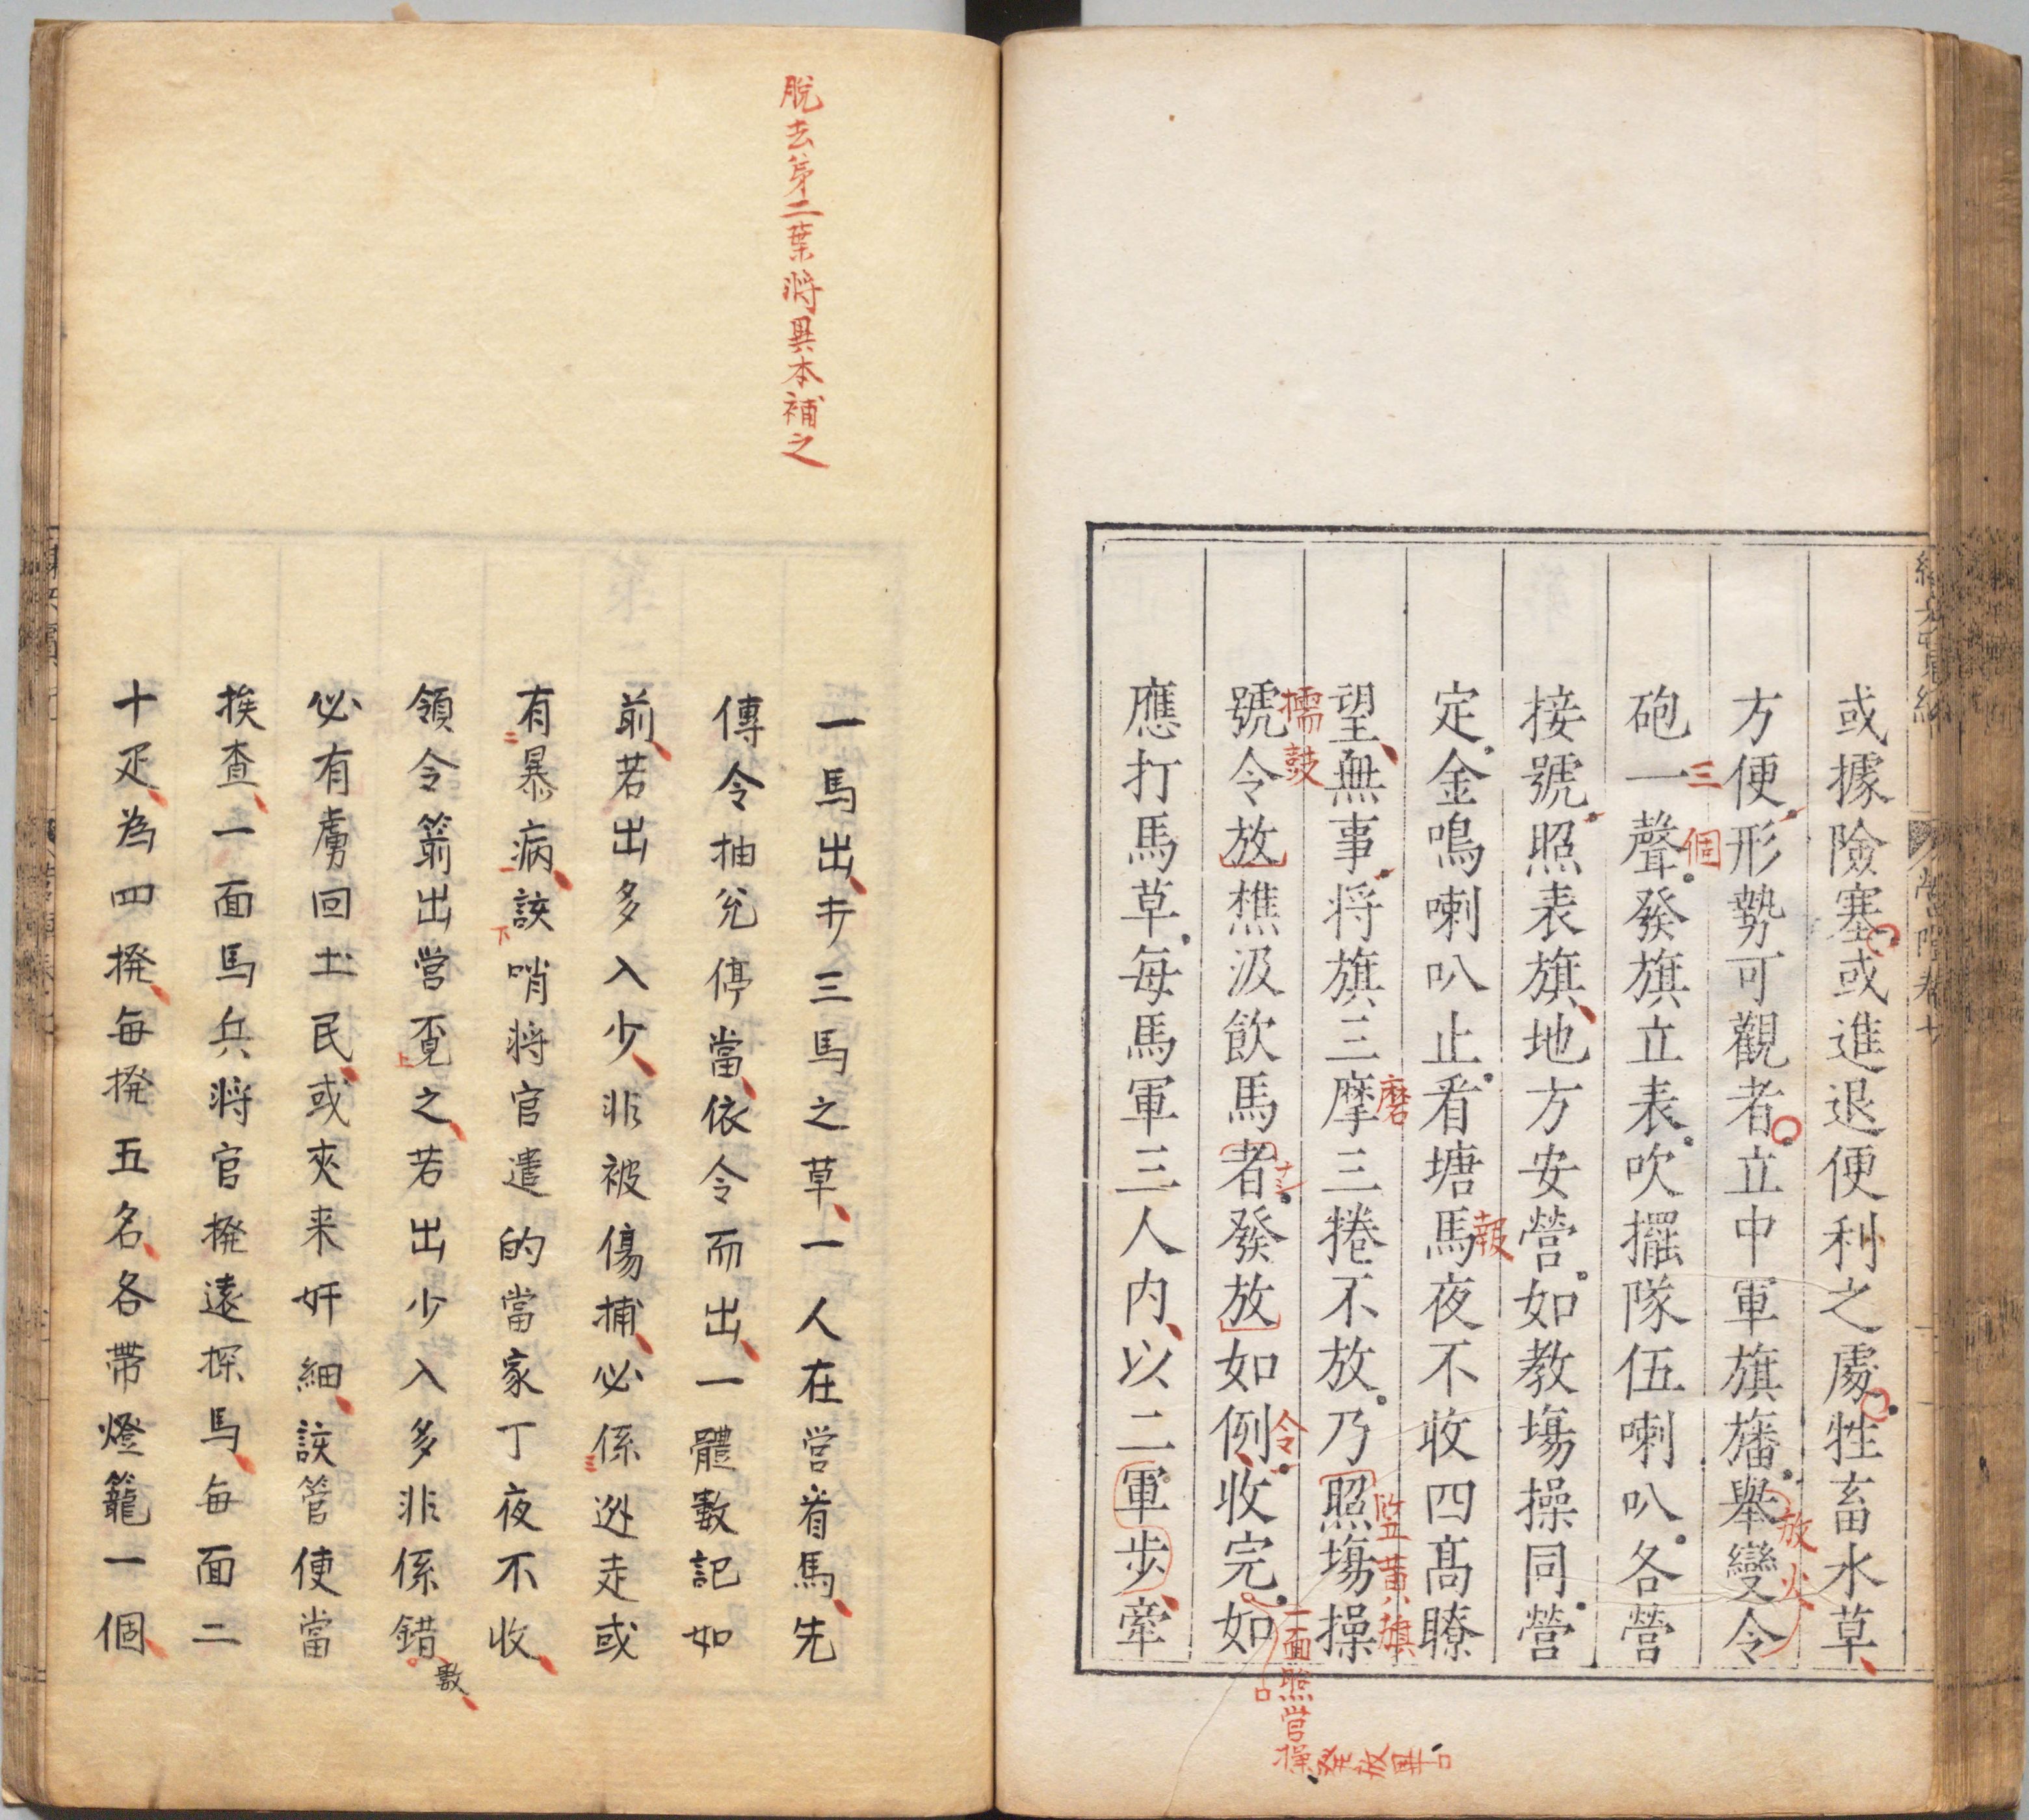 或據險塞或進退便利之處牲畜水草
方便形勢可觀者立中軍旗旛舉變令
放火
砲一聲發旗立表吹擺隊伍喇叭各營
三個
接號照表旗地方安營如教塲操同營
定金鳴喇叭止看塘馬夜不收四髙瞭
報
望無事将旗三摩三捲不放乃照塲操
磨
竪黃旗
號令放樵汲飲馬者發放如例收完如
擂鼓
令
一面照営操
發放畢
應打馬草每馬軍三人内以二軍歩牽
脫去第二葉將異本補之
一馬出井三馬之草一人在営看馬先
傳令抽兊停當依令而出一體數記如
前若出多入少非被傷捕必係逃走或
有暴病該哨将官遣的當家丁夜不收
領令箭出営覔之若出少入多非係錯
數
必有虜回土民或夾来奸細該管使當
挨查一面馬兵将官撥遠探馬每面二
十疋為四撥每撥五名各帶燈籠一個